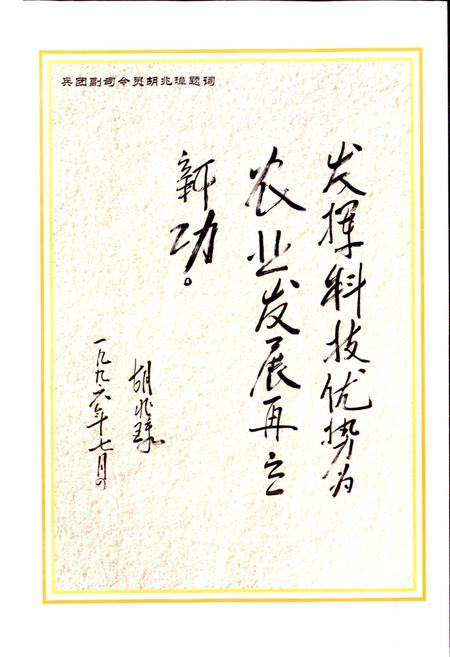 兵团副司令员胡兆璋题词
发挥科技优势为
农业发展再立
新功。
胡兆璋
一九九六年七月